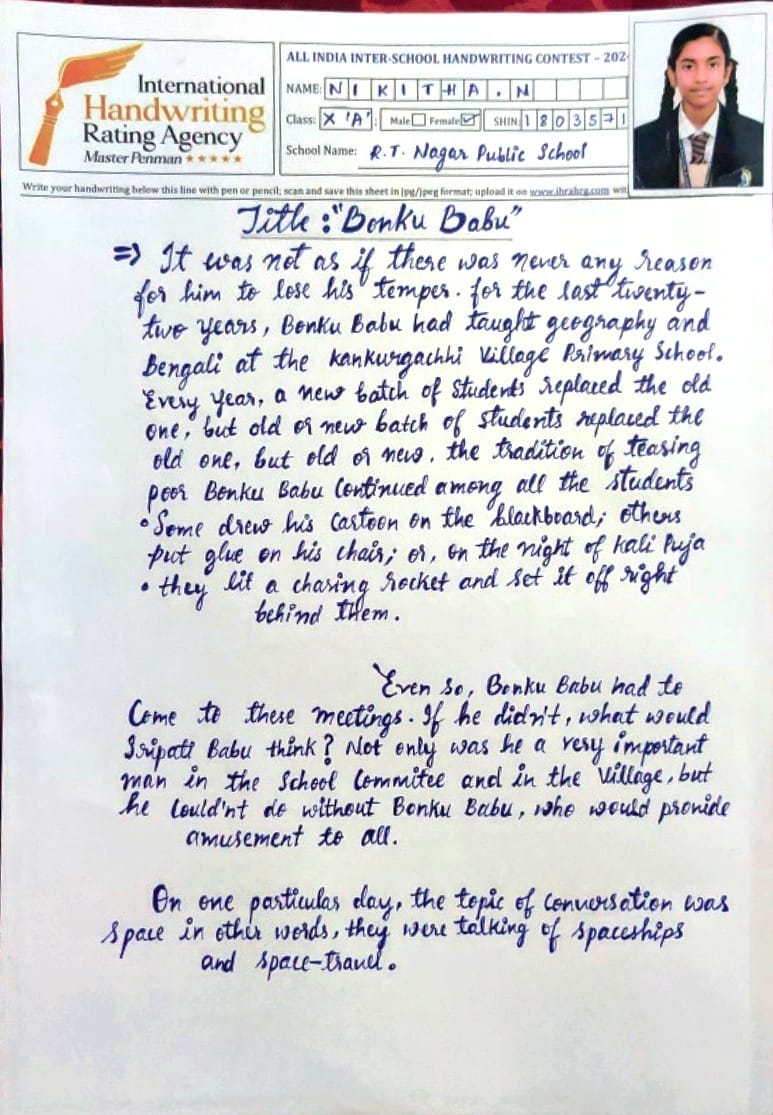 International
Handwriting
Rating Agency
Master Penman ★★★★★
ALL INDIA INTER-SCHOOL HANDWRITING CONTEST – 202
NAME: NIKITHA.N
Class: X 'A' Male Female SHIN: 1803571
School Name: R.T. Nagar Public School
Write your handwriting below this line with pen or pencil; scan and save this sheet in jpg/jpeg format; upload it on www.ihrahrg.com wit
Title : "Bonku Babu"
⇒ It was not as if there was never any reason
for him to lose his temper. for the last twenty-
two years, Bonku Babu had taught geography and
Bengali at the Kankurgachhi Village Primary School.
Every year, a new batch of Students replaced the old
one, but old or new batch of students replaced the
old one, but old or new, the tradition of teasing
poor Bonku Babu Continued among all the students
• Some drew his Cartoon on the blackboard; others
put glue on his chair; or, on the night of Kali Puja
• they lit a chasing rocket and set it off right
behind them.
Even So, Bonku Babu had to
Come to these meetings. If he didn't, what would
Sripati Babu think? Not only was he a very important
man in the School Commitee and in the Village, but
he Could'nt do without Bonku Babu, who would provide
amusement to all.
On one particular day, the topic of Conversation was
space in other words, they were talking of spaceships
and space-travel.